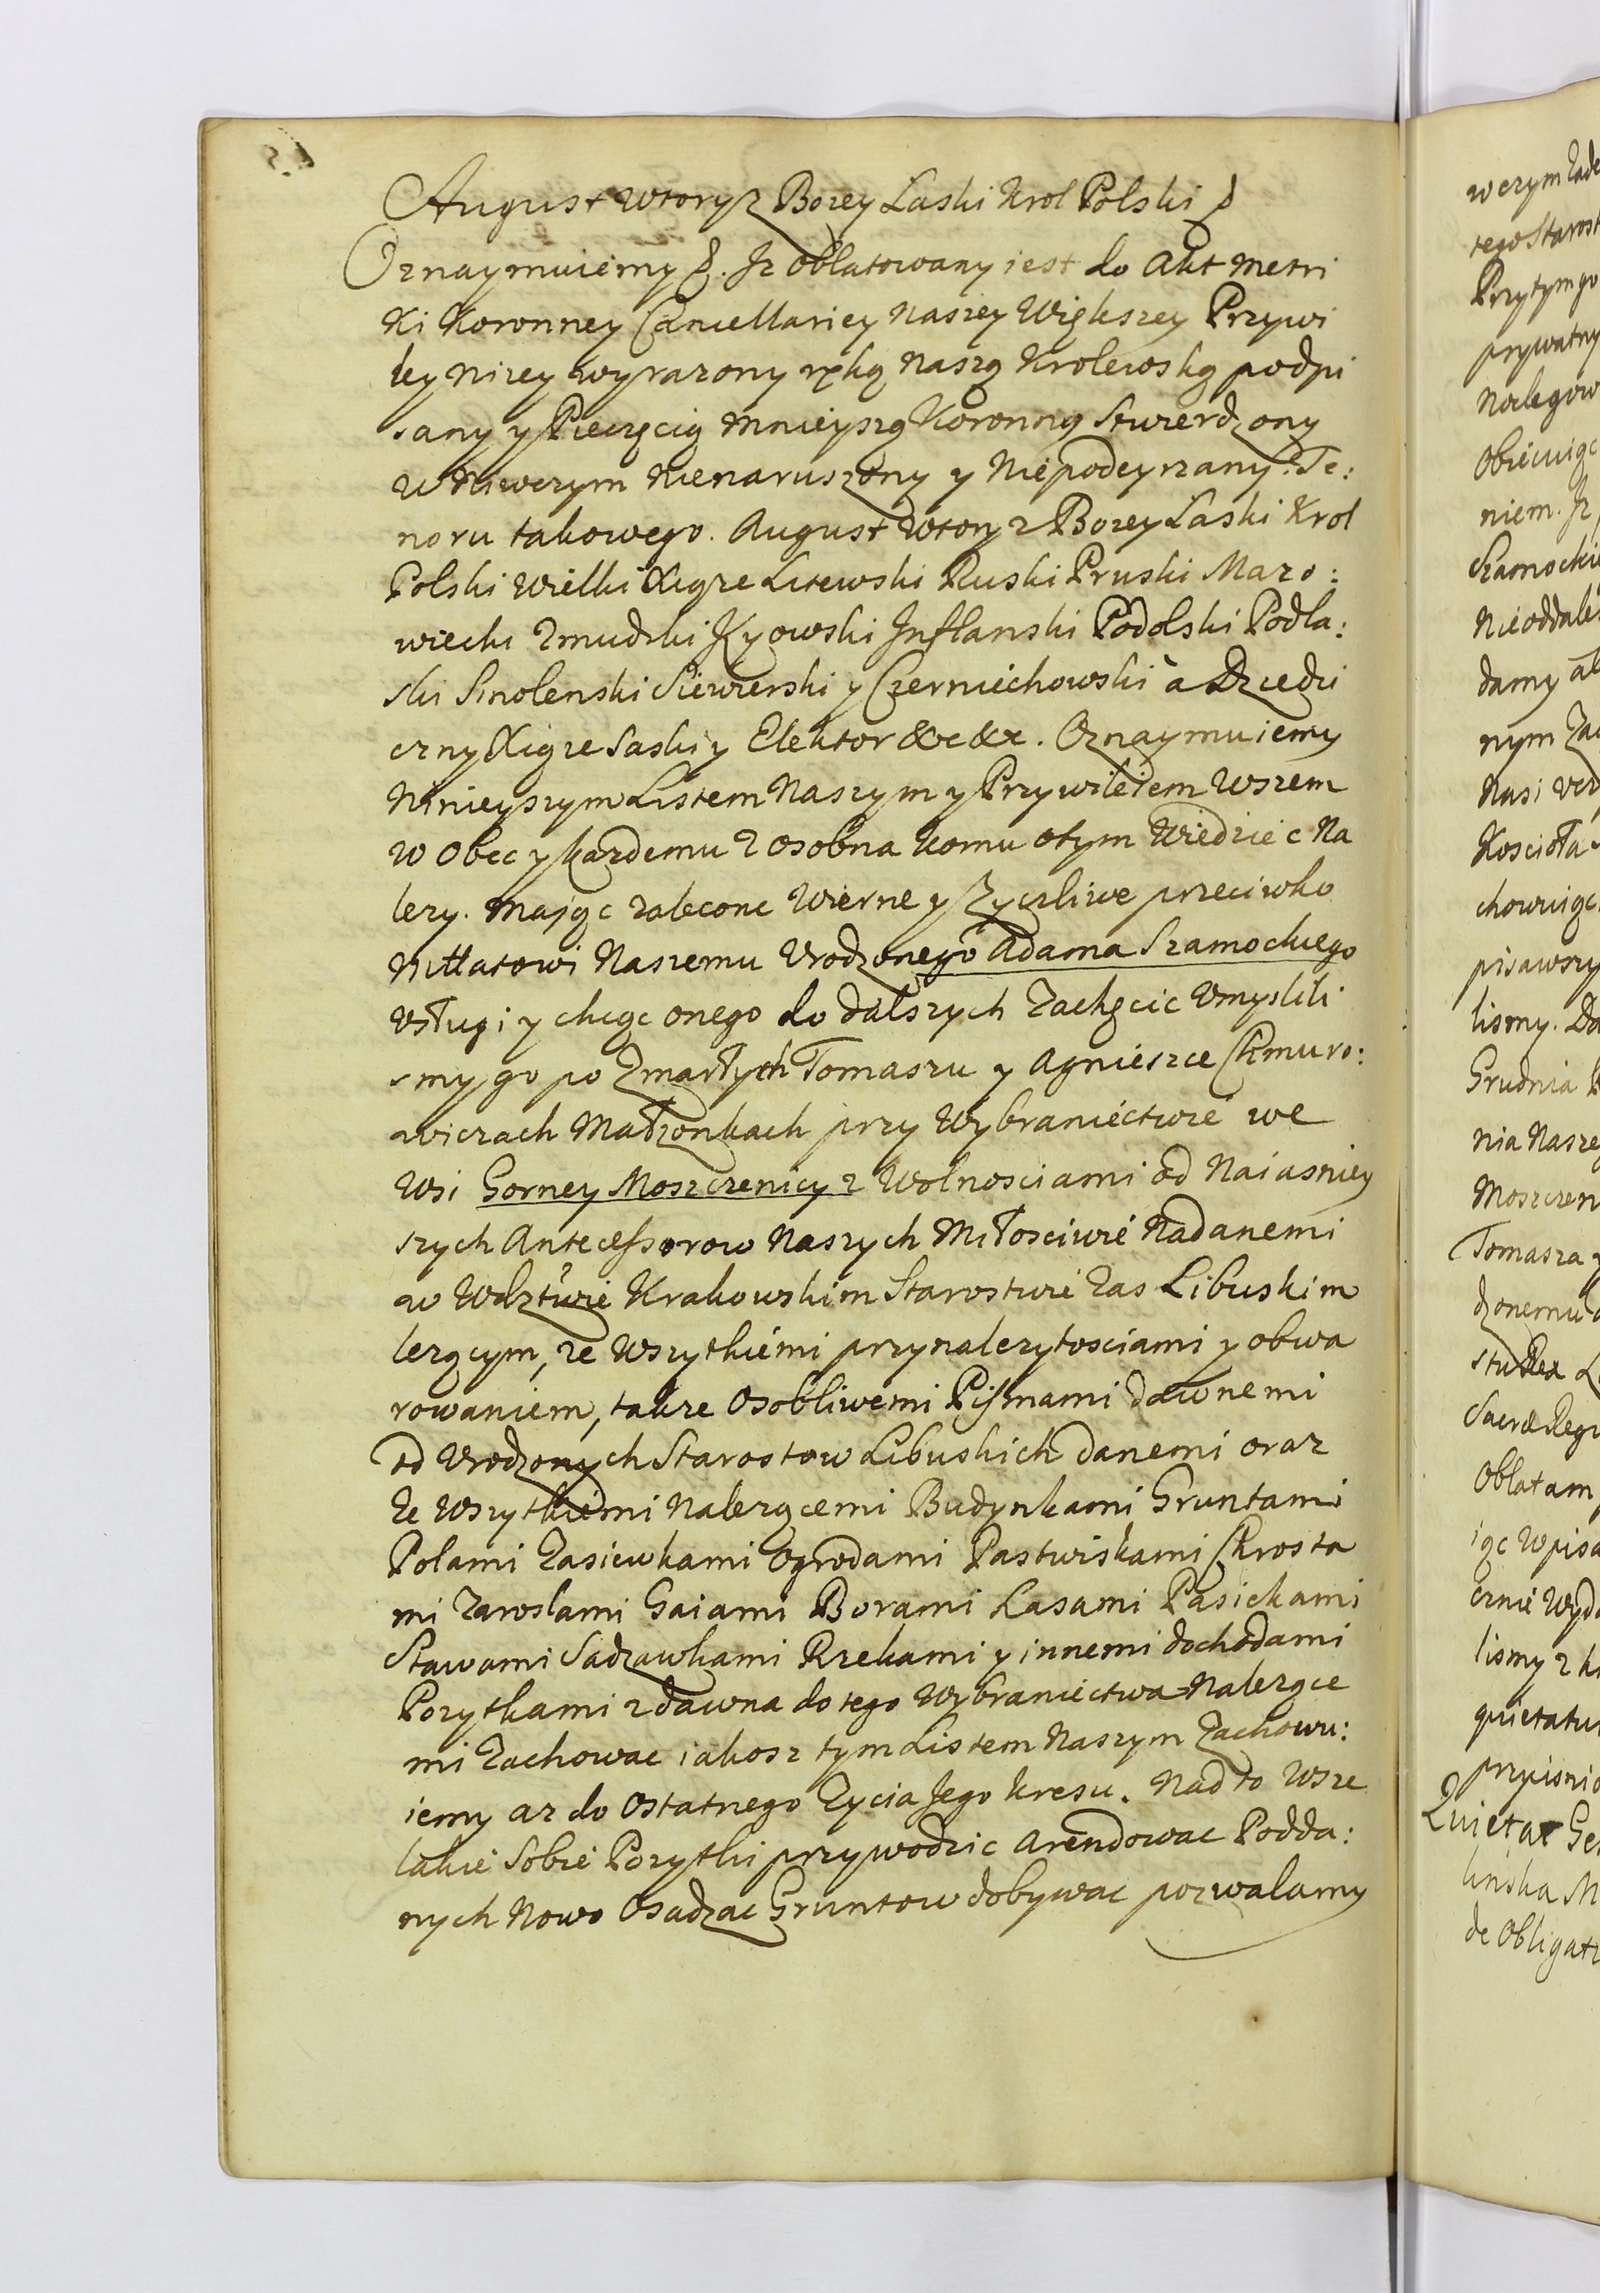 August wtory z Bozey Laski Krol Polski &
Oznaymuiemy &. Jz oblatowany iest do Akt Metri
ki Koronney Cancellariey Naszey Większey Przywi
ley nizey wyrazony ręką Naszą Krolewską podpi
sany y Pieczęcią Mnieyszą Koronną Stwierdzony
w Niwczym Nienaruszony y Niepodeyrzany. Te:
noru takowego. August wtory z Bozey Laski Krol
Polski Wielki Xiąze Litewski Ruski Pruski Mazo:
wiecki Zmudzki Kyowski Inflanski Podolski Podla:
ski Smolenski Siewierski y Czerniechowski à Dziedzi
czny Xiąze Saski y Elektor &c &c. Oznaymuiemy
Ninieyszym Listem Naszym y Przywileiem Wszem
w Obec y kazdemu z osobna komu otym Wiedziec Na
lezy. Mając zalecone Wierne y Zyczliwe przeciwko
Mttatowi Naszemu Vrodzonego Adama Szamockiego
Vsługi y chcąc onego do dalszych Zachęcic Vmyslili
smy go po Zmarłych Tomaszu y Agnieszce Chmuro:
wiczach Małzonkach przy Wybraniectwie we
Wsi Gorney Moszczenicy z Wolnosciami od Naiasniey
szych Antecessorow Naszych Miłosciwie Nadanemi
w Wdztwie Krakowskim Starostwie Zas Libuskim
lezącym, ze Wszytkiemi przynalezytosciami y obwa
rowaniem, takze Osobliwemi Pismami dawnemi
od Vrodzonych Starostow Libuskich danemi oraz
Ze Wszytkiemi Nalezącemi Budynkami Gruntami
Polami Zasiewkami Ogrodami Pastwiskami Chrosta
mi Zaroslami Gaiami Borami Lasami Pasiekami
Stawami Sadzawkami Rzekami y innemi dochodami
Pozytkami zdawna do tego Wybraniectwa Nalezące
mi Zachowac iakosz tym Listem Naszym Zachowu:
iemy az do Ostatnego Zycia Jego kresu. Nad to Wsze
lakie Sobie Pozytki przywodzic Arendowac Podda:
nych Nowo Osadzac Gruntow dobywac pozwalamy
w czym Zade
tego Starost
Przytym go
prywatny
Noclegow
Obiecuiąc
niem. Jz
Szamockie
Nieoddale
damy al
nym Zac
Nasi
Koscioła
chowuiąc
pisawszy
lismy. Da
Grudnia
nia Nasze
Moszczen
Tomasza y
dzonemu
Sacræ Regi
Oblatam
iąc Wpisa
cznie Wyda
lismy z
quietatu
Quietat Ge
linska M
de Obligat